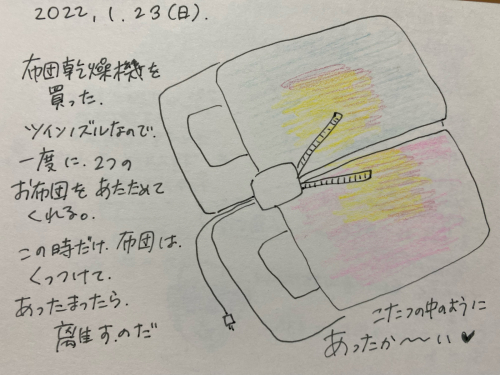 2022, 1. 23(日).
布団乾燥機を
買った.
ツインノズルなので.
一度に. 2つの
お布団を あたためて
くれる。
この時だけ. 布団は.
くっつけて.
あったまったら.
離す.のだ
こたつの中のように
あったか〜〜い♥